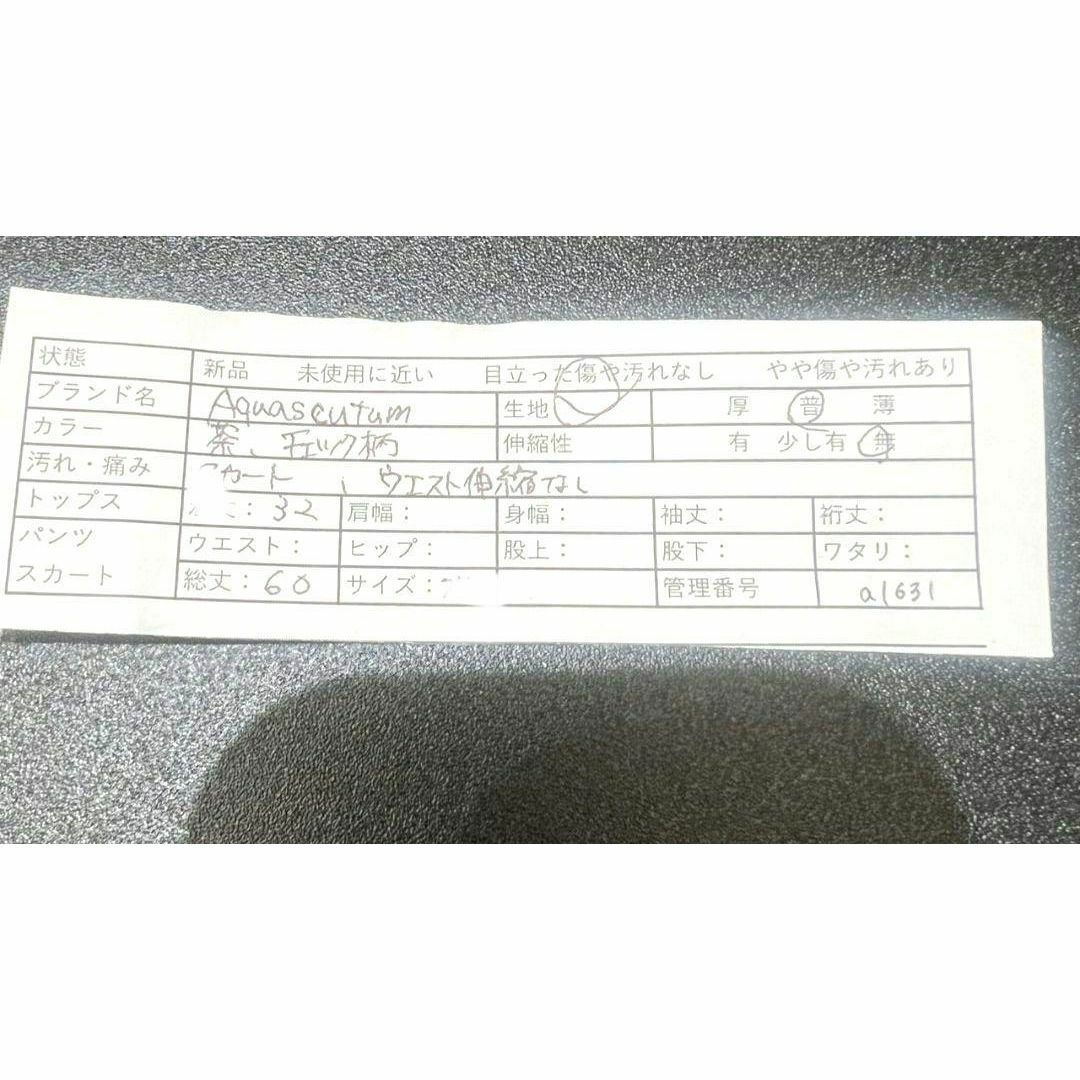 状態 新品 未使用に近い 目立った傷や汚れなし やや傷や汚れあり
ブランド名 Aquascutum 生地 厚 普 薄
カラー 茶、チェック柄 伸縮性 有 少し有 無
汚れ・痛み スカート 、ウエスト伸縮なし
トップス 丈：32 肩幅： 身幅： 袖丈： 裄丈：
パンツ ウエスト： ヒップ： 股上： 股下： ワタリ：
スカート 総丈：60 サイズ： 管理番号 a1631